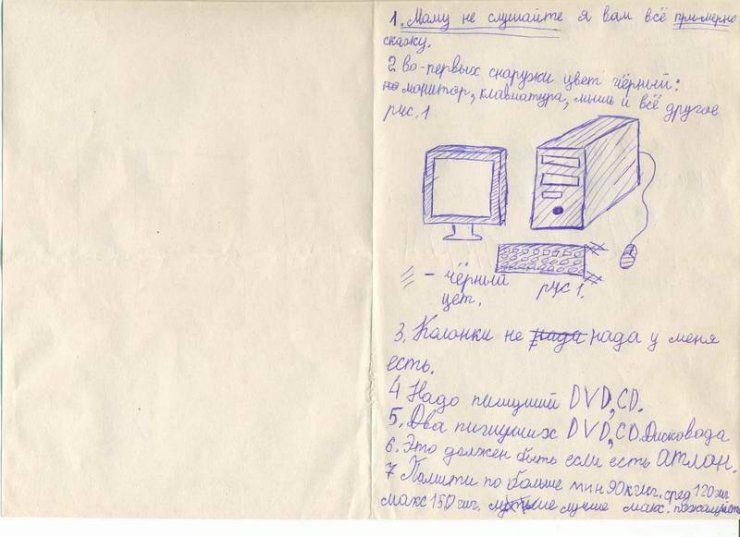 1. Маму не слушайте я вам всё примерно
скажу.
2 Во-первых снаружи цвет чёрный:
монитор, клавиатура, мышь и всё другое
рус. 1
- чёрный
цет.
рус 1.
3. Колонки не нада нада у меня
есть.
4 Надо пишущий DVD, CD.
5. Два пишущих DVD, CD. Дисковода
6. Это должен быть если есть атлон.
7 Памяти по больше мин 90к гиг. сред 120 гиг
макс 150 гиг. лучше макс. пожалуйста